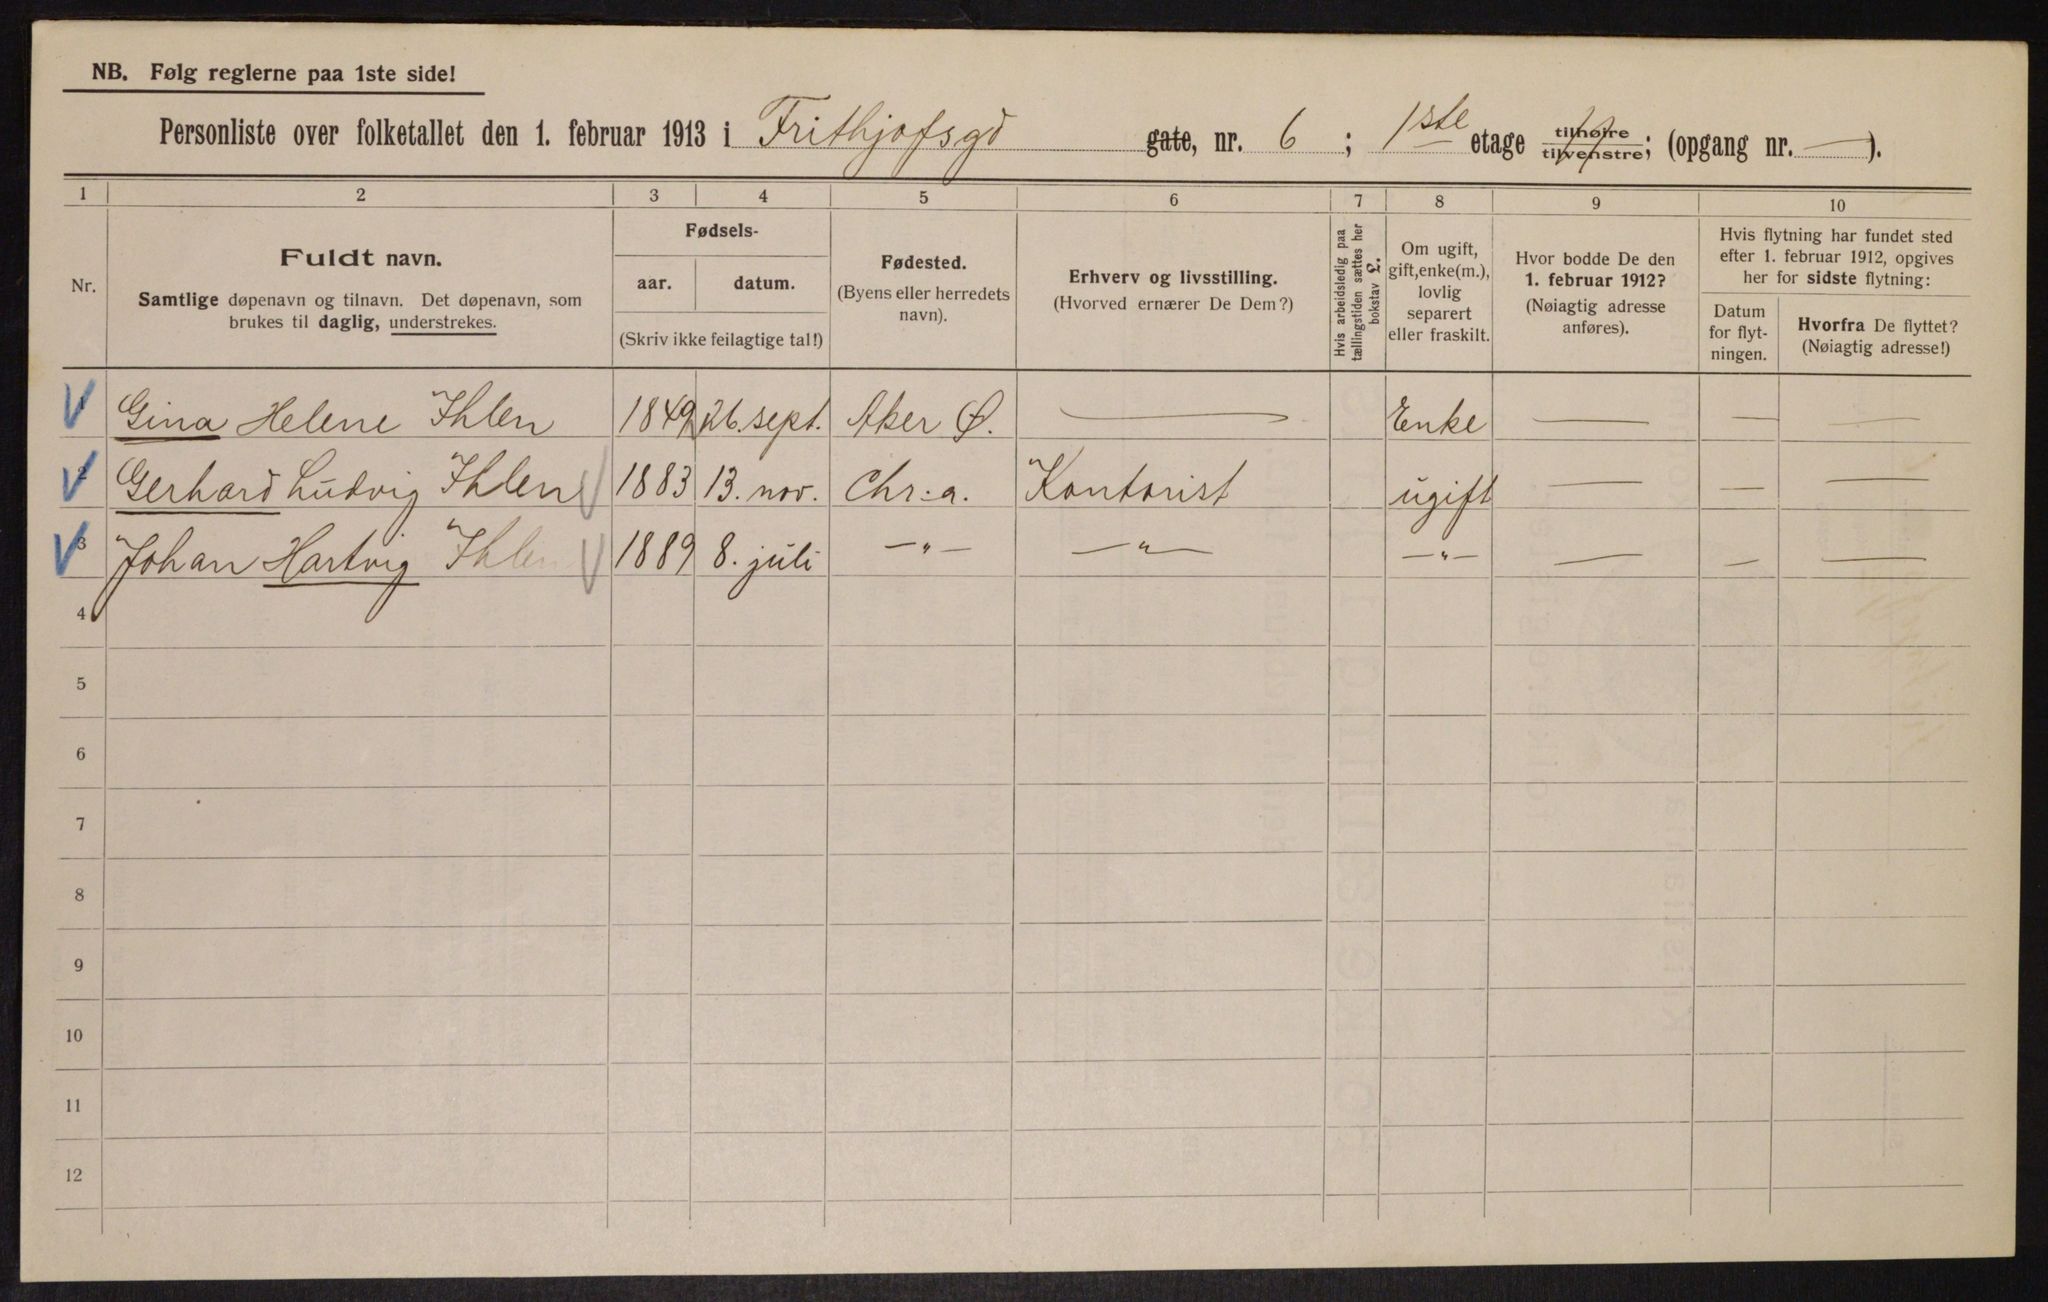 NB. Følg reglerne paa 1ste side!
Personliste over folketallet den 1. februar 1913 i Frithjofsgd gate, nr. 6 ; 1ste etage tilhøire tilvenstre; (opgang nr. — ).
1 2 3 4 5 6 7 8 9 10
Nr.
Fuldt navn.
Samtlige døpenavn og tilnavn. Det døpenavn, som
brukes til daglig, understrekes.
Fødsels-
aar. datum.
(Skriv ikke feilagtige tal!)
Fødested.
(Byens eller herredets
navn).
Erhverv og livsstilling.
(Hvorved ernærer De Dem?)
Hvis arbeidsledig paa
tællingstiden sættes her
bokstav L.
Om ugift,
gift, enke(m.),
lovlig
separert
eller fraskilt.
Hvor bodde De den
1. februar 1912?
(Nøiagtig adresse
anføres).
Hvis flytning har fundet sted
efter 1. februar 1912, opgives
her for sidste flytning:
Datum
for flyt-
ningen.
Hvorfra De flyttet?
(Nøiagtig adresse!)
1 Gina Helene Ihlen 1849 26. sept. Aker Ø. — Enke — — —
2 Gerhard Ludvig Ihlen 1883 13. nov. Chr.a. Kontorist ugift — — —
3 Johan Hartvig Ihlen 1889 8. juli —"— —"— —"— — — —
4
5
6
7
8
9
10
11
12